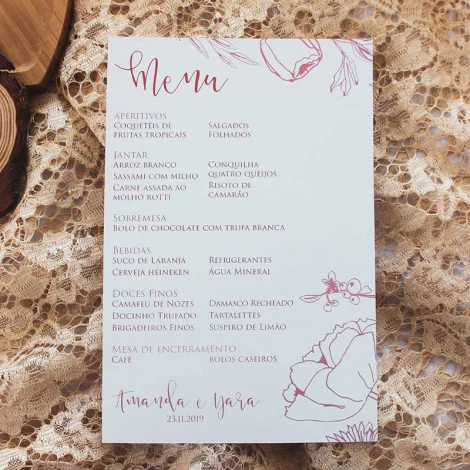 Menu
APERITIVOS
COQUETÉIS DE FRUTAS TROPICAIS
SALGADOS
FOLHADOS
JANTAR
ARROZ BRANCO
SASSAMI COM MILHO
CARNE ASSADA AO MOLHO ROTTI
CONQUILHA QUATRO QUEIJOS
RISOTO DE CAMARÃO
SOBREMESA
BOLO DE CHOCOLATE COM TRUFA BRANCA
BEBIDAS
SUCO DE LARANJA
CERVEJA HEINEKEN
REFRIGERANTES
ÁGUA MINERAL
DOCES FINOS
CAMAFEU DE NOZES
DOCINHO TRUFADO
BRIGADEIROS FINOS
DAMASCO RECHEADO
TARTALETTES
SUSPIRO DE LIMÃO
MESA DE ENCERRAMENTO
CAFÉ
BOLOS CASEIROS
Amanda e Yara
23.11.2019